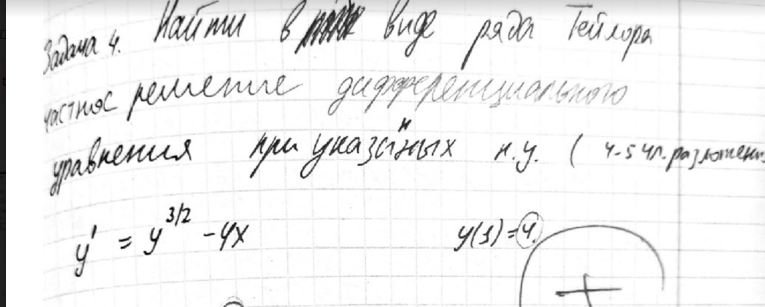 Задача 4. Найти в виде ряда Тейлора
частное решение дифференциального
уравнения при указаных н.у. ( 4-5 чл. разложения
y' = y^{3/2} - 4x y(1)=4.